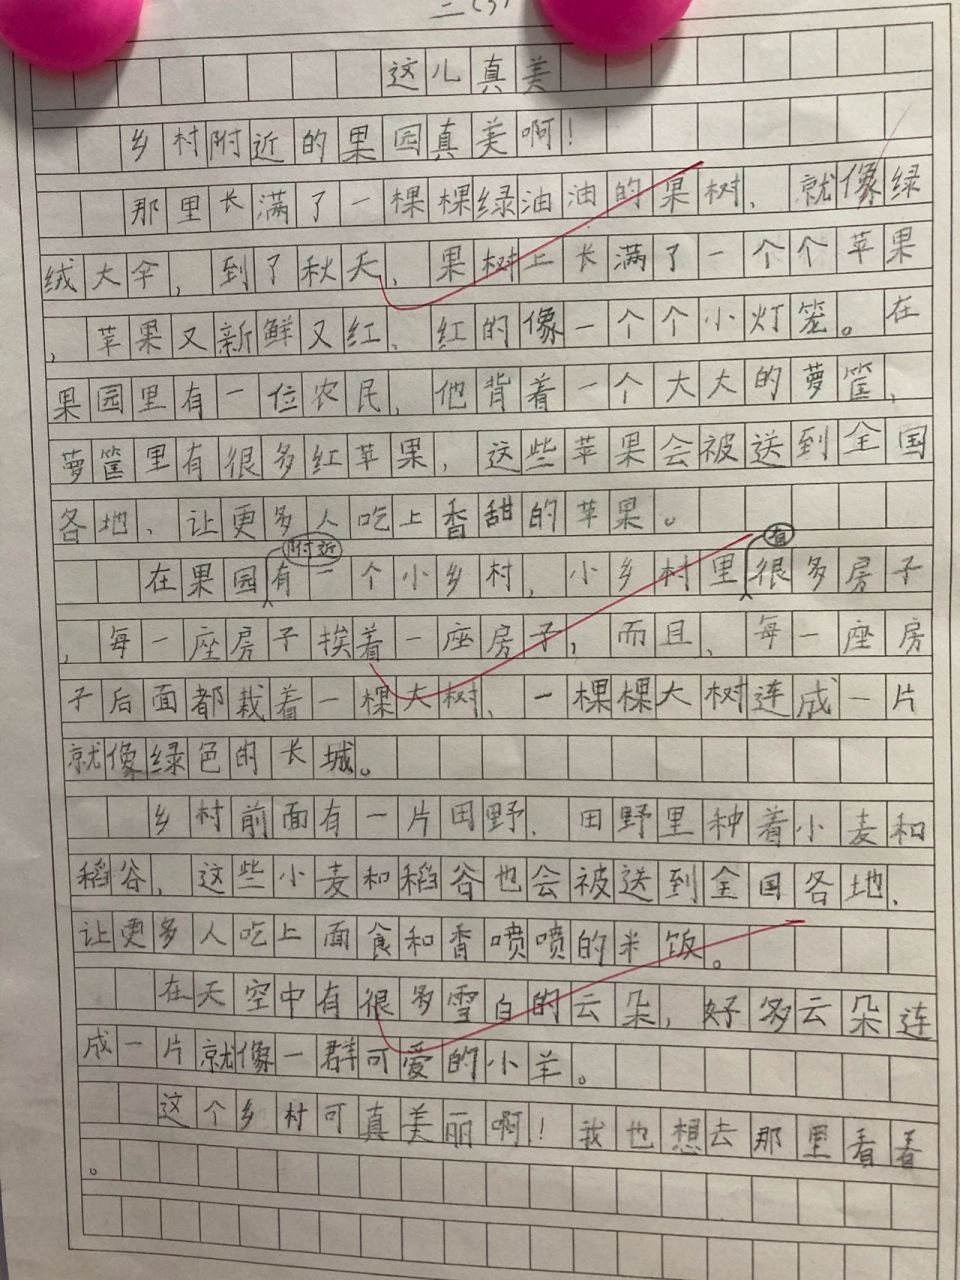 二(3)
这儿真美
乡村附近的果园真美啊!
那里长满了一棵棵绿油油的果树、就像绿
绒大伞,到了秋天、果树上长满了一个个苹果
,苹果又新鲜又红、红的像一个个小灯笼。在
果园里有一位农民、他背着一个大大的萝筐、
萝筐里有很多红苹果,这些苹果会被送到全国
各地、让更多人吃上香甜的苹果。
附近 有
在果园有一个小乡村,小乡村里很多房子
,每一座房子挨着一座房子,而且、每一座房
子后面都栽着一棵大树、一棵棵大树连成一片
就像绿色的长城。
乡村前面有一片田野、田野里种着小麦和
稻谷,这些小麦和稻谷也会被送到全国各地、
让更多人吃上面食和香喷喷的米饭。
在天空中有很多雪白的云朵,好多云朵连
成一片就像一群可爱的小羊。
这个乡村可真美丽啊!我也想去那里看看
。